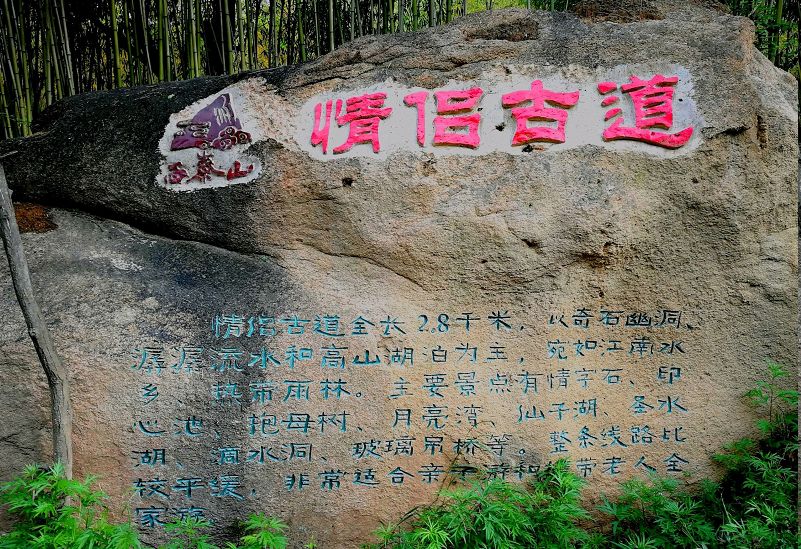 情侣古道
情侣古道全长2.8千米，以奇石幽洞、
潺潺流水和高山湖泊为主，宛如江南水
乡、热带雨林。主要景点有情字石、印
心池、抱母树、月亮湾、仙子湖、圣水
湖、滴水洞、玻璃吊桥等。整条线路比
较平缓，非常适合亲子游和带老人全
家游